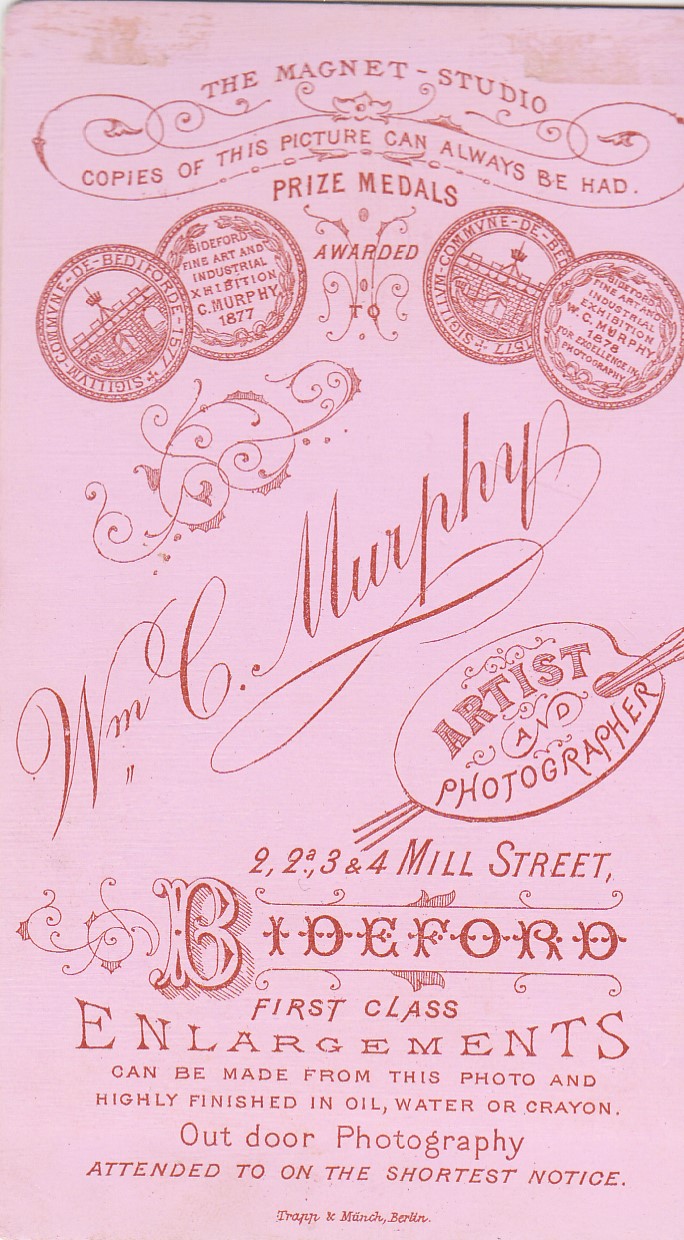 THE MAGNET-STUDIO
COPIES OF THIS PICTURE CAN ALWAYS BE HAD.
PRIZE MEDALS
AWARDED
TO
SIGILLVM-COMMVNE-DE-BEDIFORDE-1577
BIDEFORD
FINE ART AND
INDUSTRIAL
EXHIBITION
C. MURPHY
1877
SIGILLVM-COMMVNE-DE-BED
1577
BIDEFORD
FINE ART AND
INDUSTRIAL
EXHIBITION
W. C. MURPHY
1878
FOR EXCELLENCE IN
PHOTOGRAPHY
Wm C. Murphy
ARTIST
AND
PHOTOGRAPHER
2, 2a, 3 & 4 MILL STREET,
BIDEFORD
FIRST CLASS
ENLARGEMENTS
CAN BE MADE FROM THIS PHOTO AND
HIGHLY FINISHED IN OIL, WATER OR CRAYON.
Out door Photography
ATTENDED TO ON THE SHORTEST NOTICE.
Trapp & Münch, Berlin.